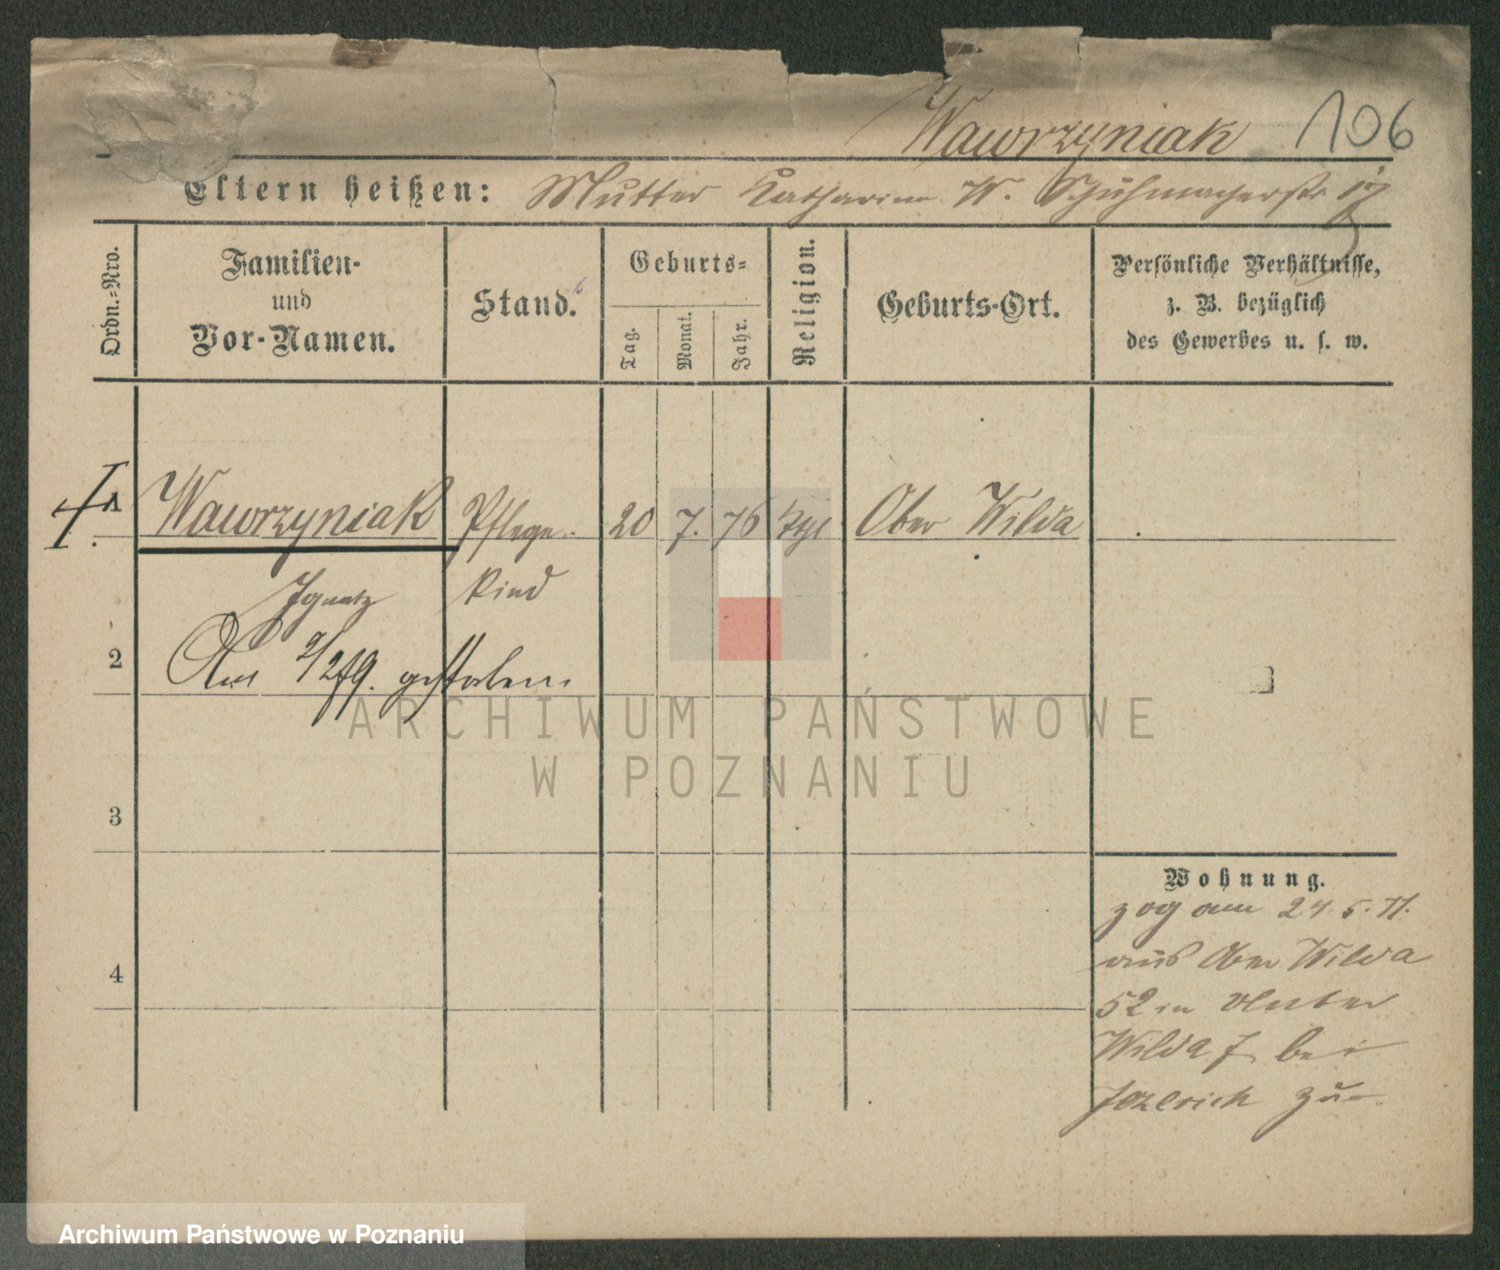 Wawrzyniak 106
Eltern heißen: Mutter Katharina W. Schuhmacherstr
Ordn.-Nro.
Familien-
und
Vor-Namen.
Stand.
Geburts-
Tag.
Monat.
Jahr.
Religion.
Geburts-Ort.
Persönliche Verhältnisse,
z. B. bezüglich
des Gewerbes u. s. w.
1 Wawrzyniak Pflege- 20 7. 76 Ober Wilda
Ignatz kind
2 Am gestorben.
ARCHIWUM PAŃSTWOWE
W POZNANIU
3
Wohnung.
zog am 24.5.77.
aus Ober Wilda
4
52 in Unter
Wilda 7 bei
zu.
Archiwum Państwowe w Poznaniu